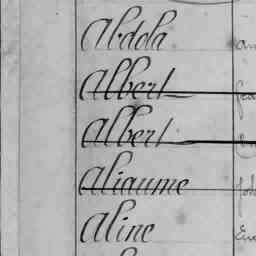 Abdola
Albert
Albert
Aliaume
Aline